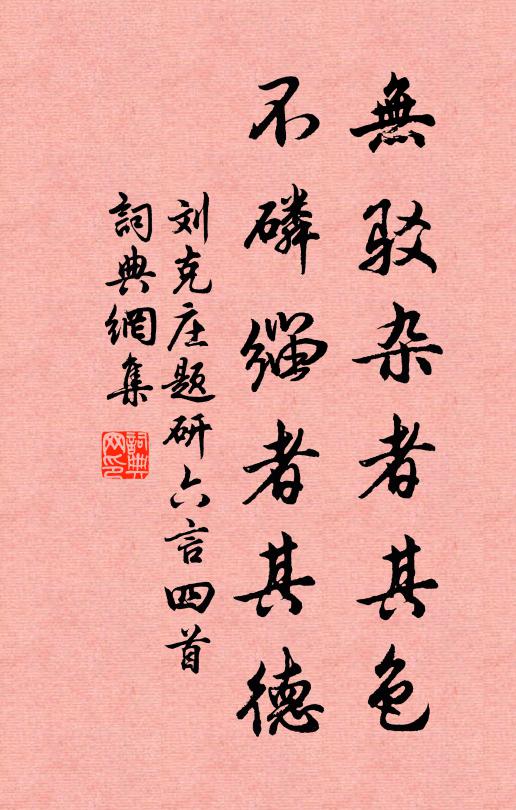 無驳杂者其色
不磷缁者其德
刘克庄题研六言四首
詞典網集
詞典網印